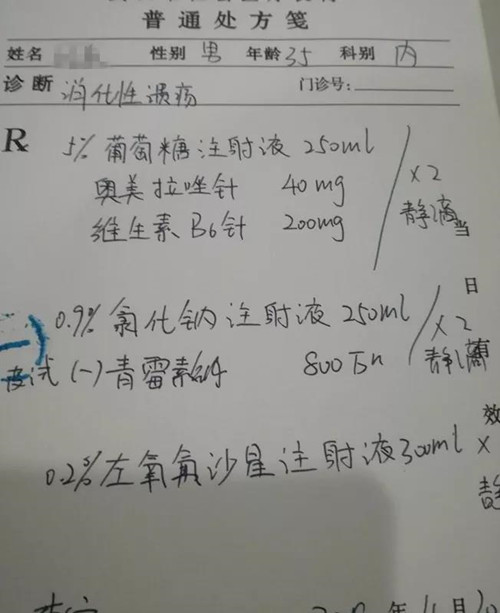 普通处方笺
姓名 性别 男 年龄 35 科别 内
诊断 消化性溃疡 门诊号：
R 5% 葡萄糖注射液 250ml
奥美拉唑针 40mg ×2
维生素B6针 200mg 静滴
当
日
0.9% 氯化钠注射液 250ml ×2
皮试(一)青霉素钠 800万u 静滴
有
效
0.2% 左氧氟沙星注射液 300ml ×
静